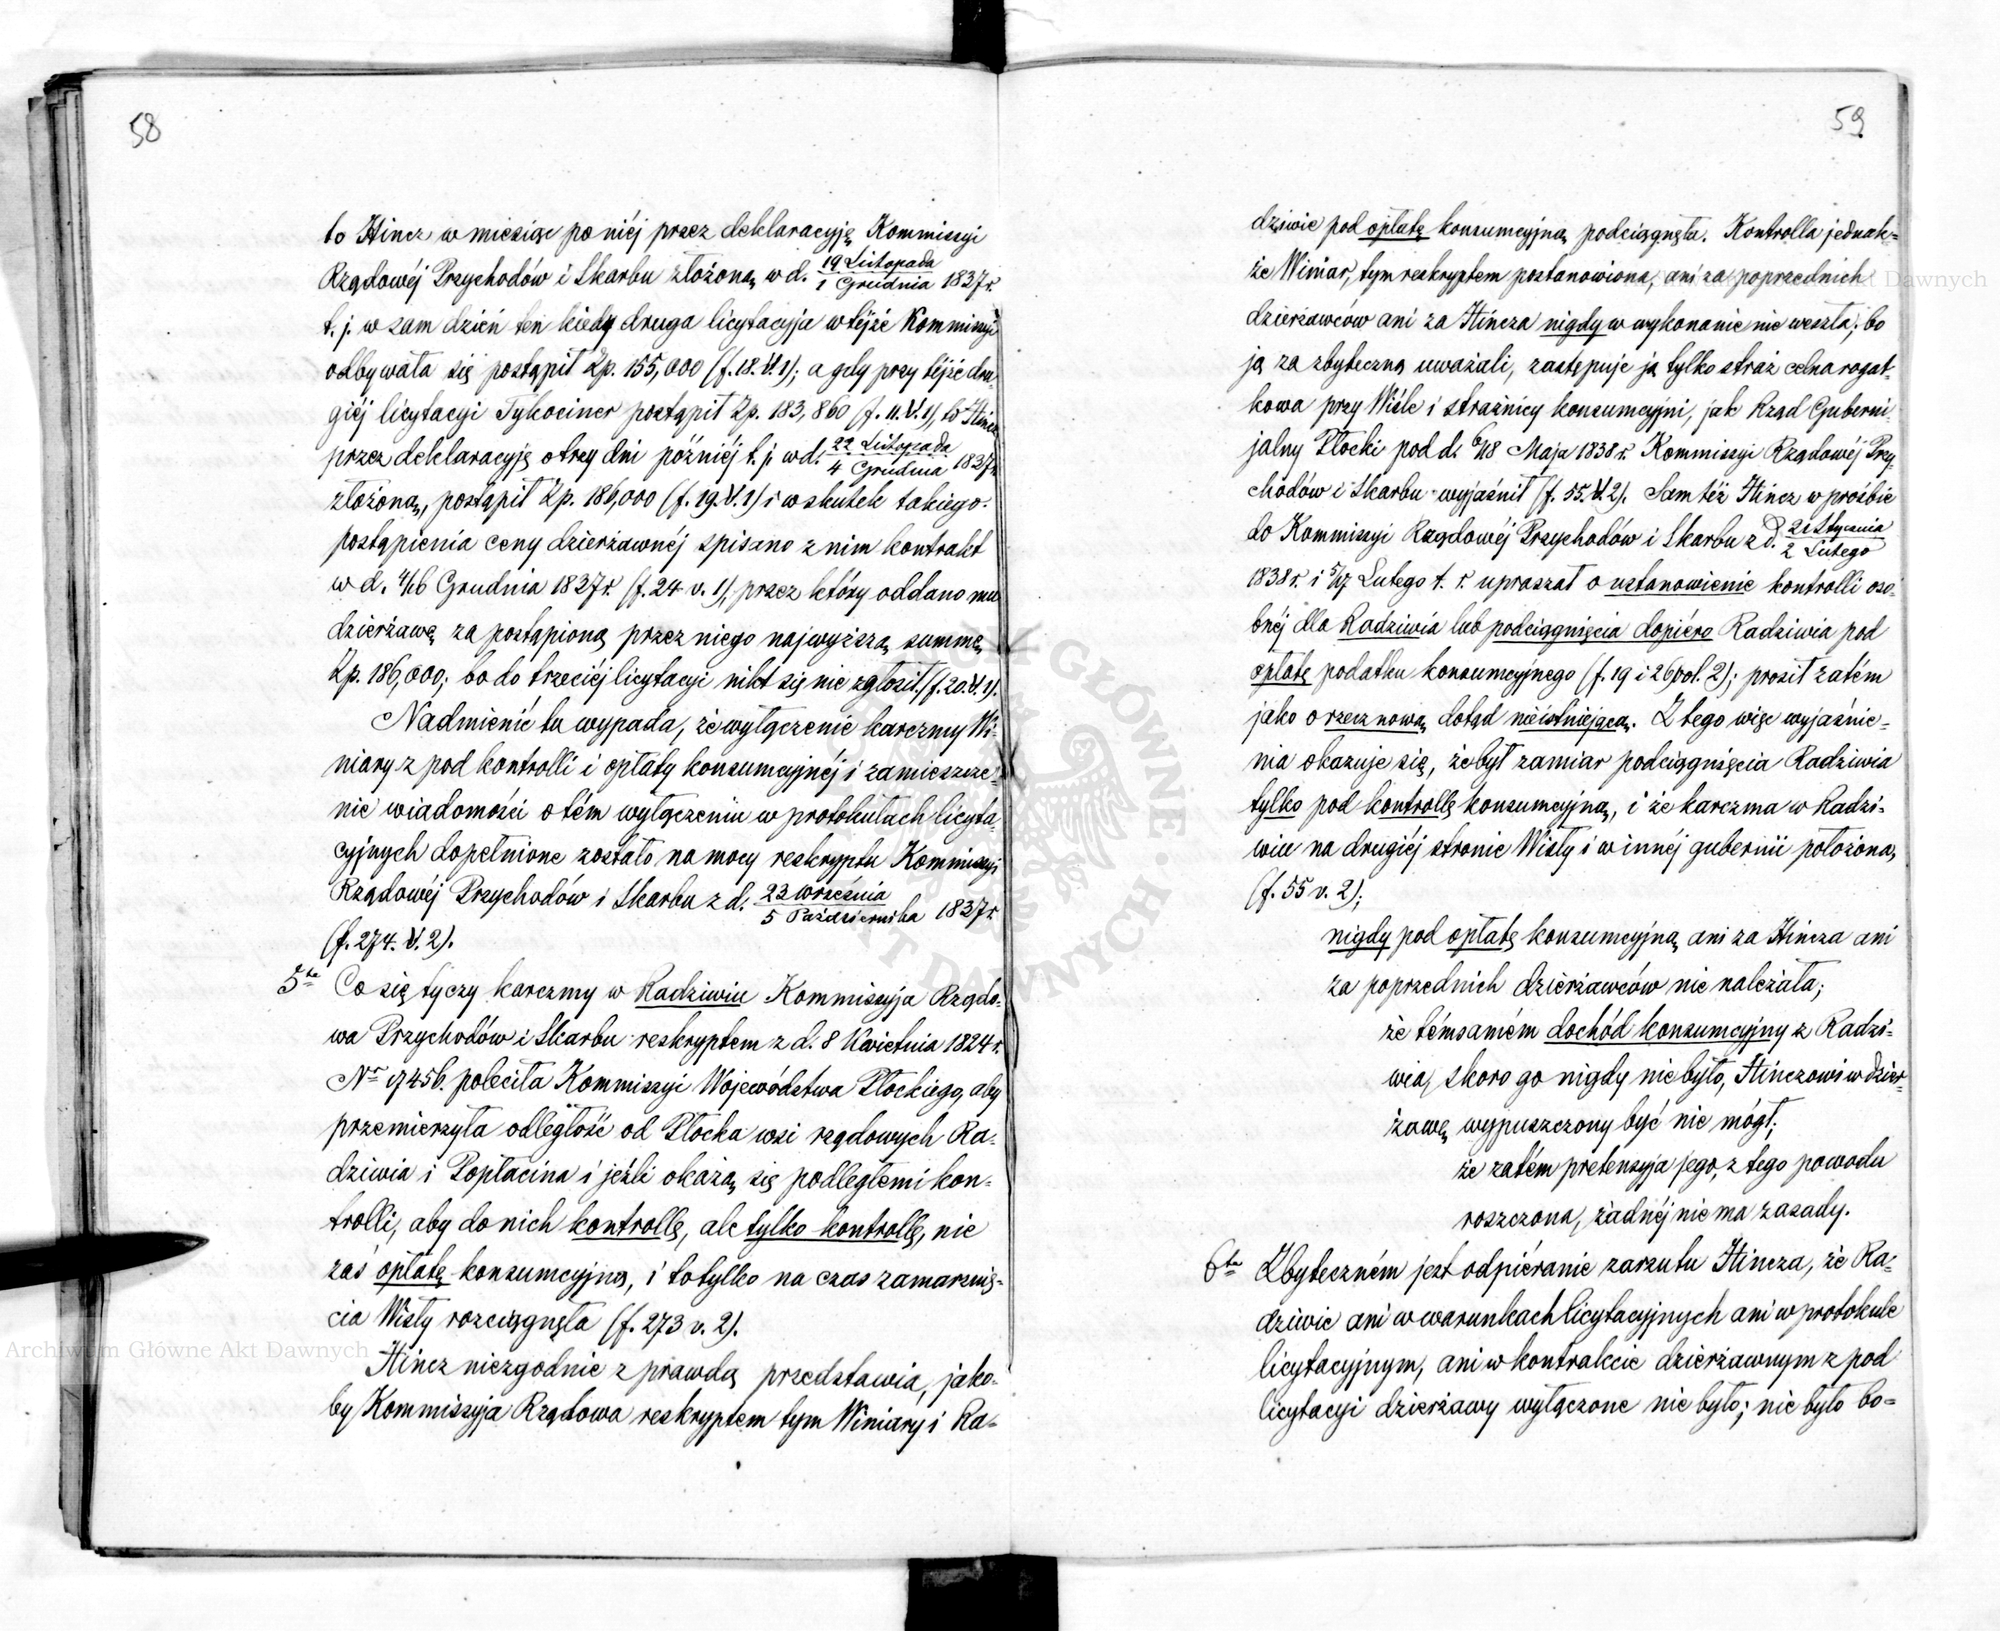 58
to Hincz w miesiąc po niéj przez deklaracyję Kommissyi
Rządowéj Przychodów i Skarbu złożoną w d. 19 Listopada / 1 Grudnia 1837 r.
t. j. w sam dzień ten kiedy druga licytacyja w téjże Kommissyi
odbywała się postąpił Zp. 155,000 (f. 18. V. 1); a gdy przy téjże dru
giéj licytacyi Tykociner postąpił Zp. 183,860 (f. 11. V. 1), to Hincz
przez deklaracyję o trzy dni późniéj t. j. w d. 22 Listopada / 4 Grudnia 1837 r.
złożoną, postąpił Zp. 186,000 (f. 19. V. 1) i w skutek takiego
postąpienia ceny dzierżawnéj spisano z nim kontrakt
w d. 4/16 Grudnia 1837 r. (f. 24 v. 1), przez który oddano mu
dzierżawę za postąpioną przez niego najwyższą summę
Zp. 186,000; bo do trzeciéj licytacyi nikt się nie zgłosił. (f. 20. V. 1).
Nadmienić tu wypada, że wyłączenie karczmy Wi-
niary z pod kontrolli i opłaty konsumcyjnéj i zamieszcze-
nie wiadomości o tém wyłączeniu w protokułach licyta-
cyjnych dopełnione zostało na mocy reskryptu Kommissyi
Rządowéj Przychodów i Skarbu z d. 23 września / 5 Października 1837 r.
(f. 274. V. 2).
5te Co się tyczy karczmy w Radziwiu Kommissyja Rządo-
wa Przychodów i Skarbu reskryptem z d. 8 Kwietnia 1824 r.
Nr 17456. poleciła Kommissyi Województwa Płockiego, aby
przemierzyła odległość od Płocka wsi rządowych Ra-
dziwia i Popłacina i jeźli okażą się podległemi kon-
trolli, aby do nich kontrollę, ale tylko kontrollę, nie
zaś opłatę konsumcyjną, i to tylko na czas zamarznię-
cia Wisły rozciągnęła (f. 273 v. 2).
Hincz niezgodnie z prawdą przedstawia, jako-
by Kommissyja Rządowa reskryptem tym Winiary i Ra-
59
dziwie pod opłatę konsumcyjną podciągnęła. Kontrolla jednak-
że Winiar, tym reskryptem postanowiona, ani za poprzednich
dzierżawców ani za Hincza nigdy w wykonanie nie weszła; bo
ją za zbyteczną uważali, zastępuje ją tylko straż celna rogat-
kowa przy Wiśle i strażnicy konsumcyjni, jak Rząd Guberni-
jalny Płocki pod d. 6/18 Maja 1838 r. Kommissyi Rządowéj Przy-
chodów i Skarbu wyjaśnił (f. 55. V. 2). Sam téż Hincz w prośbie
do Kommissyi Rządowéj Przychodów i Skarbu z d. 21 Stycznia / 2 Lutego
1838 r. i 5/17 Lutego t. r. upraszał o ustanowienie kontrolli oso-
bnéj dla Radziwia lub podciągnięcia dopiéro Radziwia pod
opłatę podatku konsumcyjnego (f. 19 i 26 vol. 2); prosił zatém
jako o rzecz nową dotąd nieistniejącą. Z tego więc wyjaśnie-
nia okazuje się, że był zamiar podciągnięcia Radziwia
tylko pod kontrollę konsumcyjną, i że karczma w Radzi-
wiu na drugiéj stronie Wisły i w innéj gubernii położona,
(f. 55 v. 2);
nigdy pod opłatę konsumcyjną ani za Hincza ani
za poprzednich dzierżawców nie należała;
że témsamém dochód konsumcyjny z Radzi-
wia, skoro go nigdy nie było, Hinczowi w dzier-
żawę wypuszczony być nie mógł;
że zatém pretensyja jego, z tego powodu
roszczona, żadnéj nie ma zasady.
6te Zbyteczném jest odpiéranie zarzutu Hincza, że Ra-
dziwie ani w warunkach licytacyjnych ani w protokule
licytacyjnym, ani w kontrakcie dzierżawnym z pod
licytacyi dzierżawy wyłączone nie było; nie było bo-
Archiwum Główne Akt Dawnych